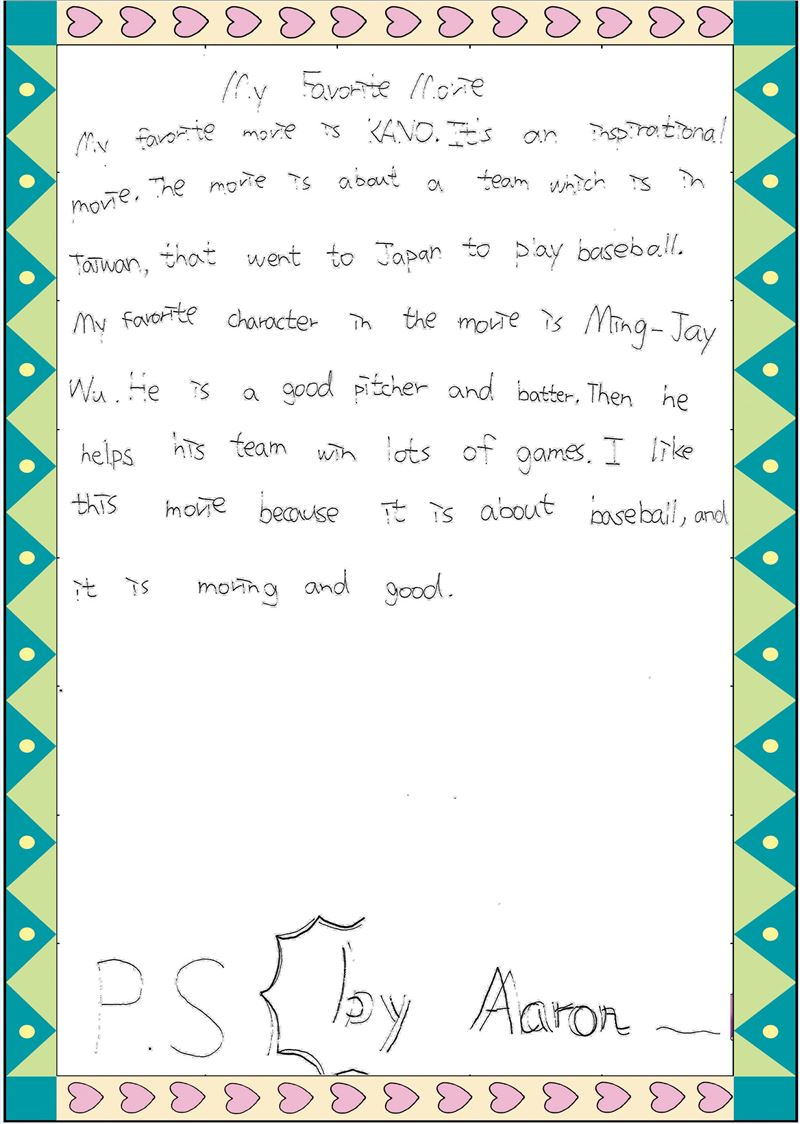 My Favorite Movie
My favorite movie is KANO. It's an inspirational
movie. The movie is about a team which is in
Taiwan, that went to Japan to play baseball.
My favorite character in the movie is Ming-Jay
Wu. He is a good pitcher and batter. Then he
helps his team win lots of games. I like
this movie because it is about baseball, and
it is moving and good.
P.S by Aaron